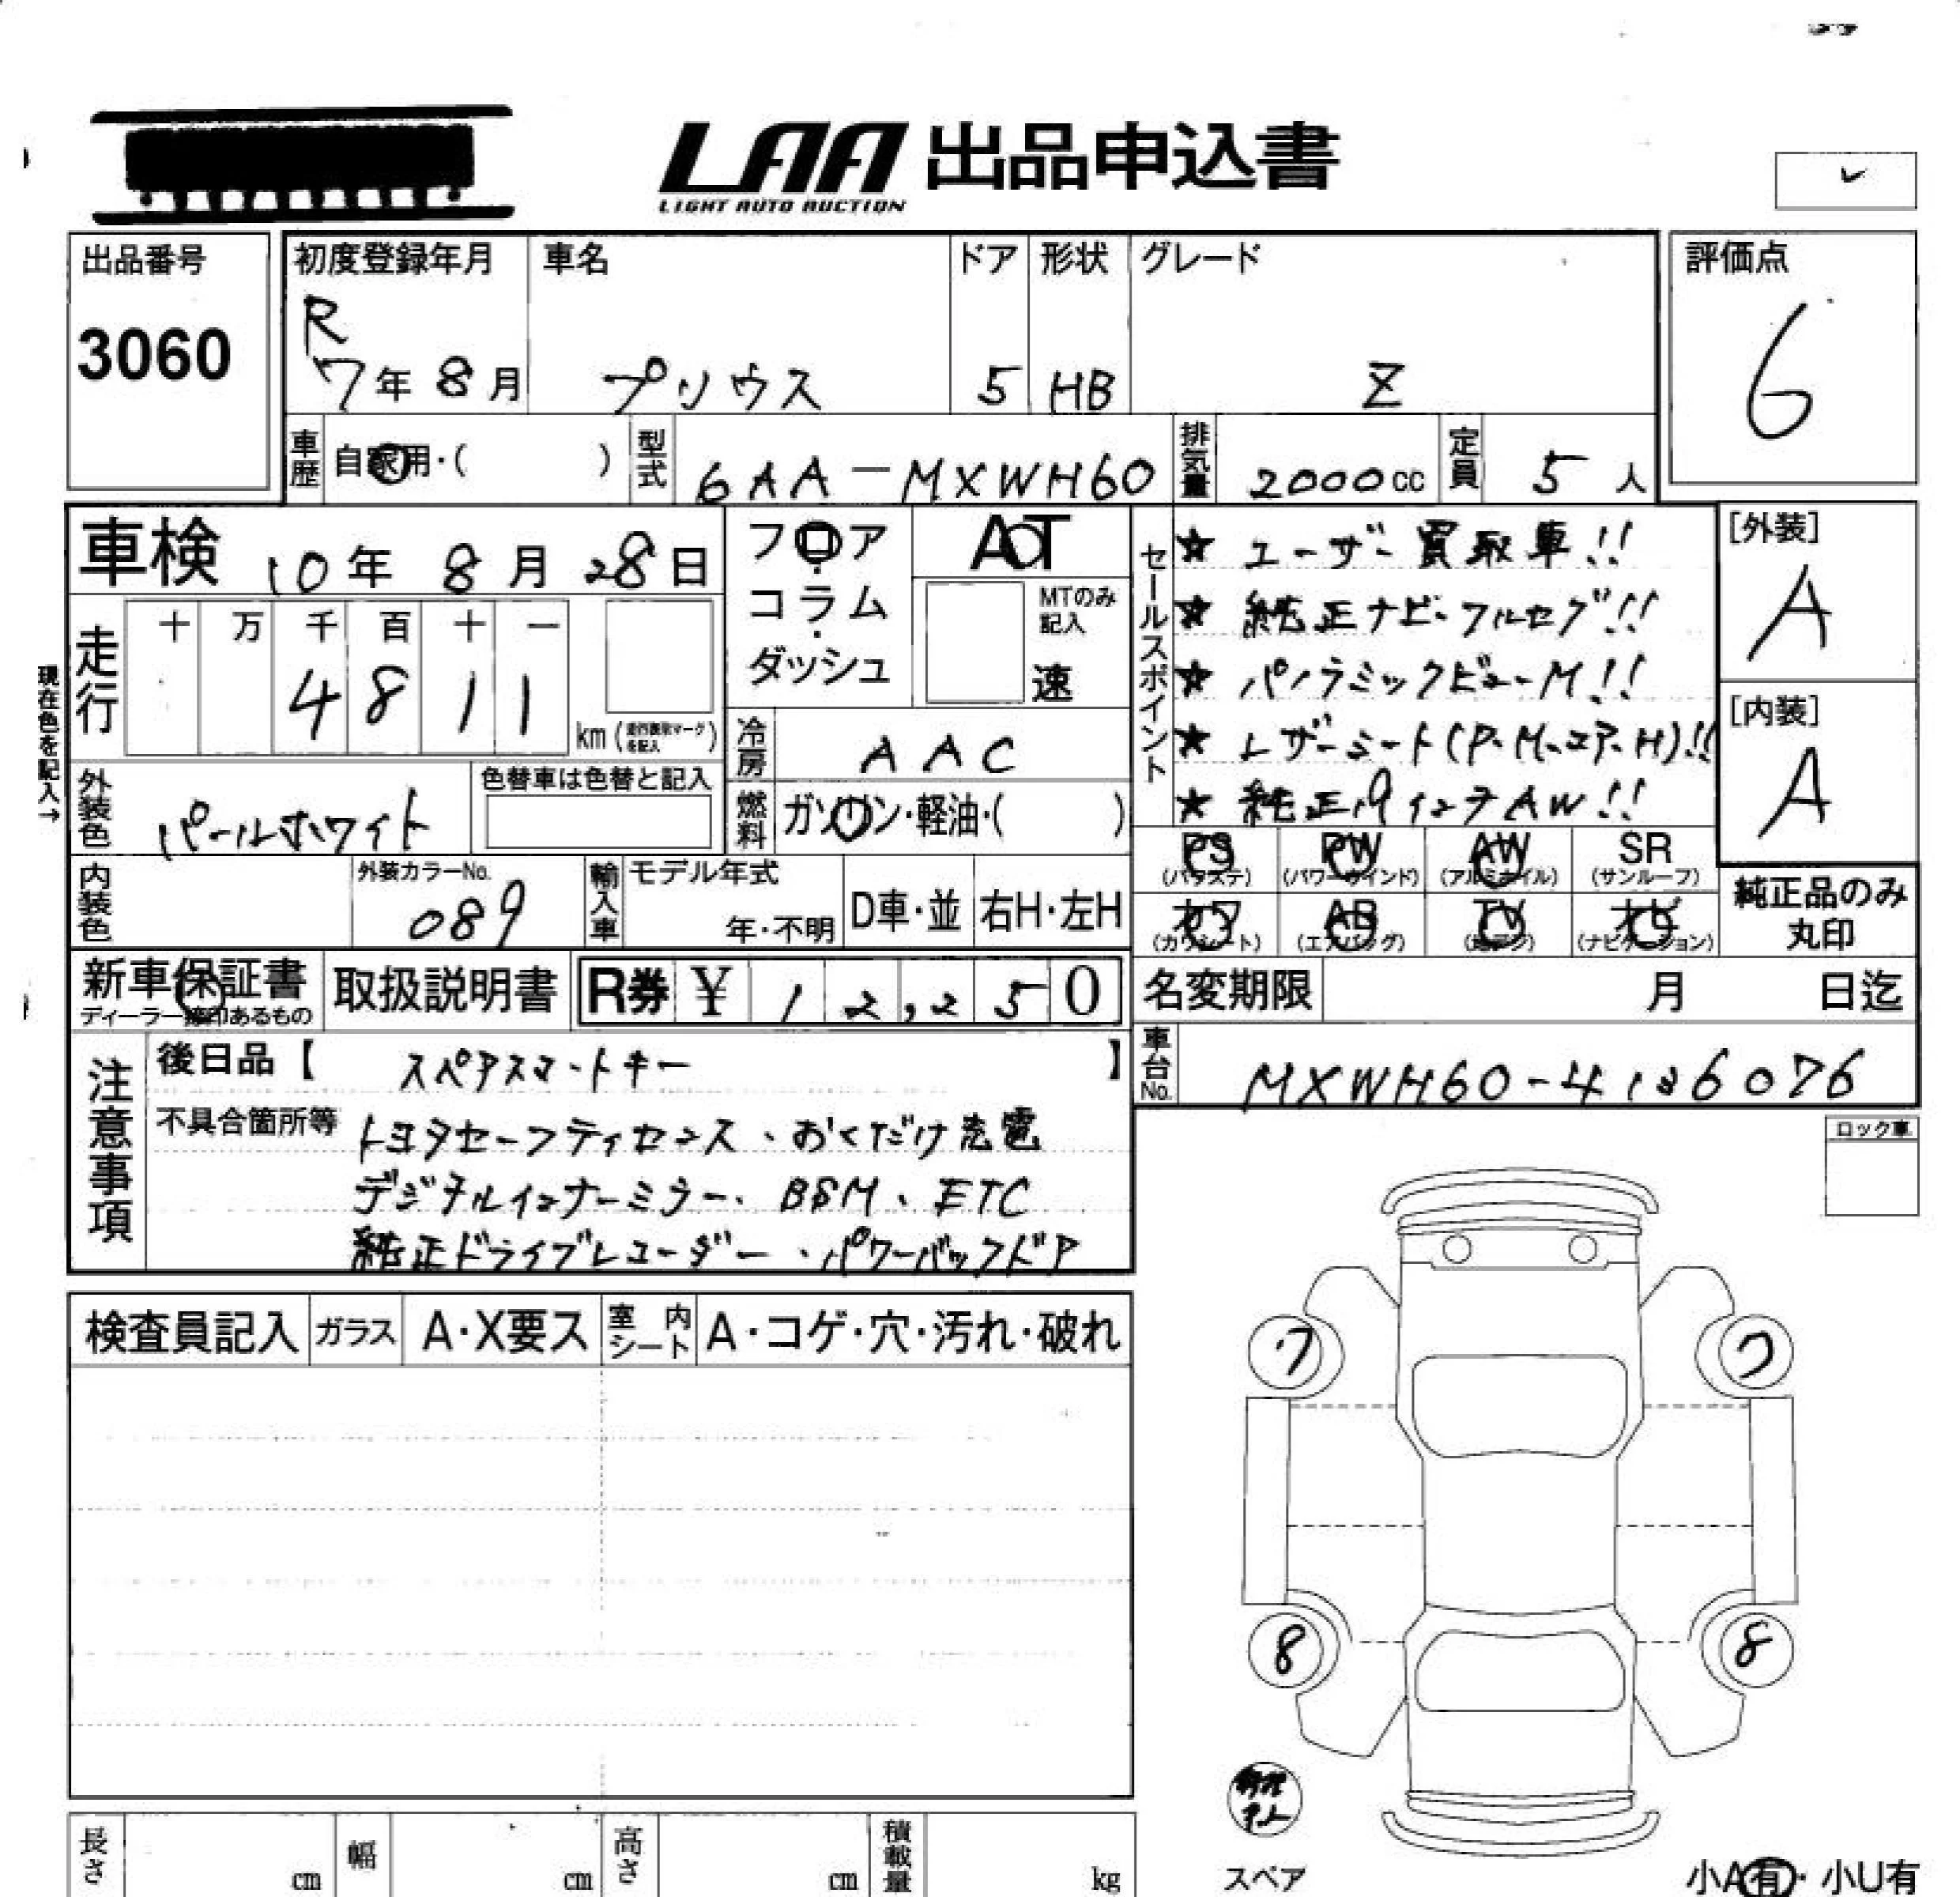 LAA 出品申込書
LIGHT AUTO AUCTION
出品番号
3060
初度登録年月
R
7年 8月
車名
プリウス
ドア
5
形状
HB
グレード
Z
評価点
6
車歴
自家用・( )
型式
6AA-MXWH60
排気量
2000cc
定員
5人
車検 10年 8月 28日
フロア・コラム・ダッシュ
AT
MTのみ記入
速
走行
十 万 千 百 十 一
4 8 1 1
km
現在色を記入→
冷房
AAC
外装色
パールホワイト
色替車は色替と記入
燃料
ガソリン・軽油・( )
内装色
外装カラーNo.
089
輸入車
モデル年式
年・不明
D車・並
右H・左H
セールスポイント
★ ユーザー買取車!!
★ 純正ナビ・フルセグ!!
★ パノラミックビューM!!
★ レザーシート(P・M・エア・H)!!
★ 純正19インチAW!!
[外装]
A
[内装]
A
PS
(パワステ)
PW
(パワーウインド)
AW
(アルミホイル)
SR
(サンルーフ)
カワ
(カワシート)
AB
(エアバッグ)
TV
(地デジ)
ナビ
(ナビゲーション)
純正品のみ
丸印
新車保証書
ディーラー捺印あるもの
取扱説明書
R券 ¥ 12,250
名変期限
月 日迄
注意事項
後日品【 スペアスマートキー 】
不具合箇所等 トヨタセーフティセンス、おくだけ充電
デジタルインナーミラー、BSM、ETC
純正ドライブレコーダー、パワーバックドア
車台No.
MXWH60-4136076
ロック車
検査員記入
ガラス
A・X要ス
室内シート
A・コゲ・穴・汚れ・破れ
7
7
8
8
スペア
小A有・小U有
長さ
cm
幅
cm
高さ
cm
積載量
kg